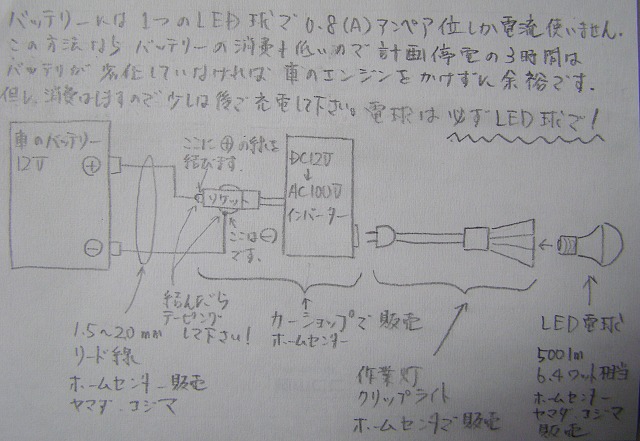 バッテリーには1つのLED球で0.8(A)アンペア位しか電流使いません。
この方法なら バッテリーの消費も低いので計画停電の3時間は
バッテリが劣化していなければ 車のエンジンをかけずに余裕です。
但し、消費はしますので少しは後で充電して下さい。電球は必ずLED球で!
車のバッテリー
12V
⊕
⊖
ここに⊕の線は
結びます。
ソケット
ここは⊖
です。
DC12V
↓
AC100V
インバーター
1.5〜2.0mm
リード線
ホームセンター販売
ヤマダ.コジマ
結んだら
テーピング
して下さい!
カーショップで販売
ホームセンター
作業灯
クリップライト
ホームセンタで販売
LED電球
500lm
6.4ワット相当
ホームセンター
ヤマダ.コジマ
販売